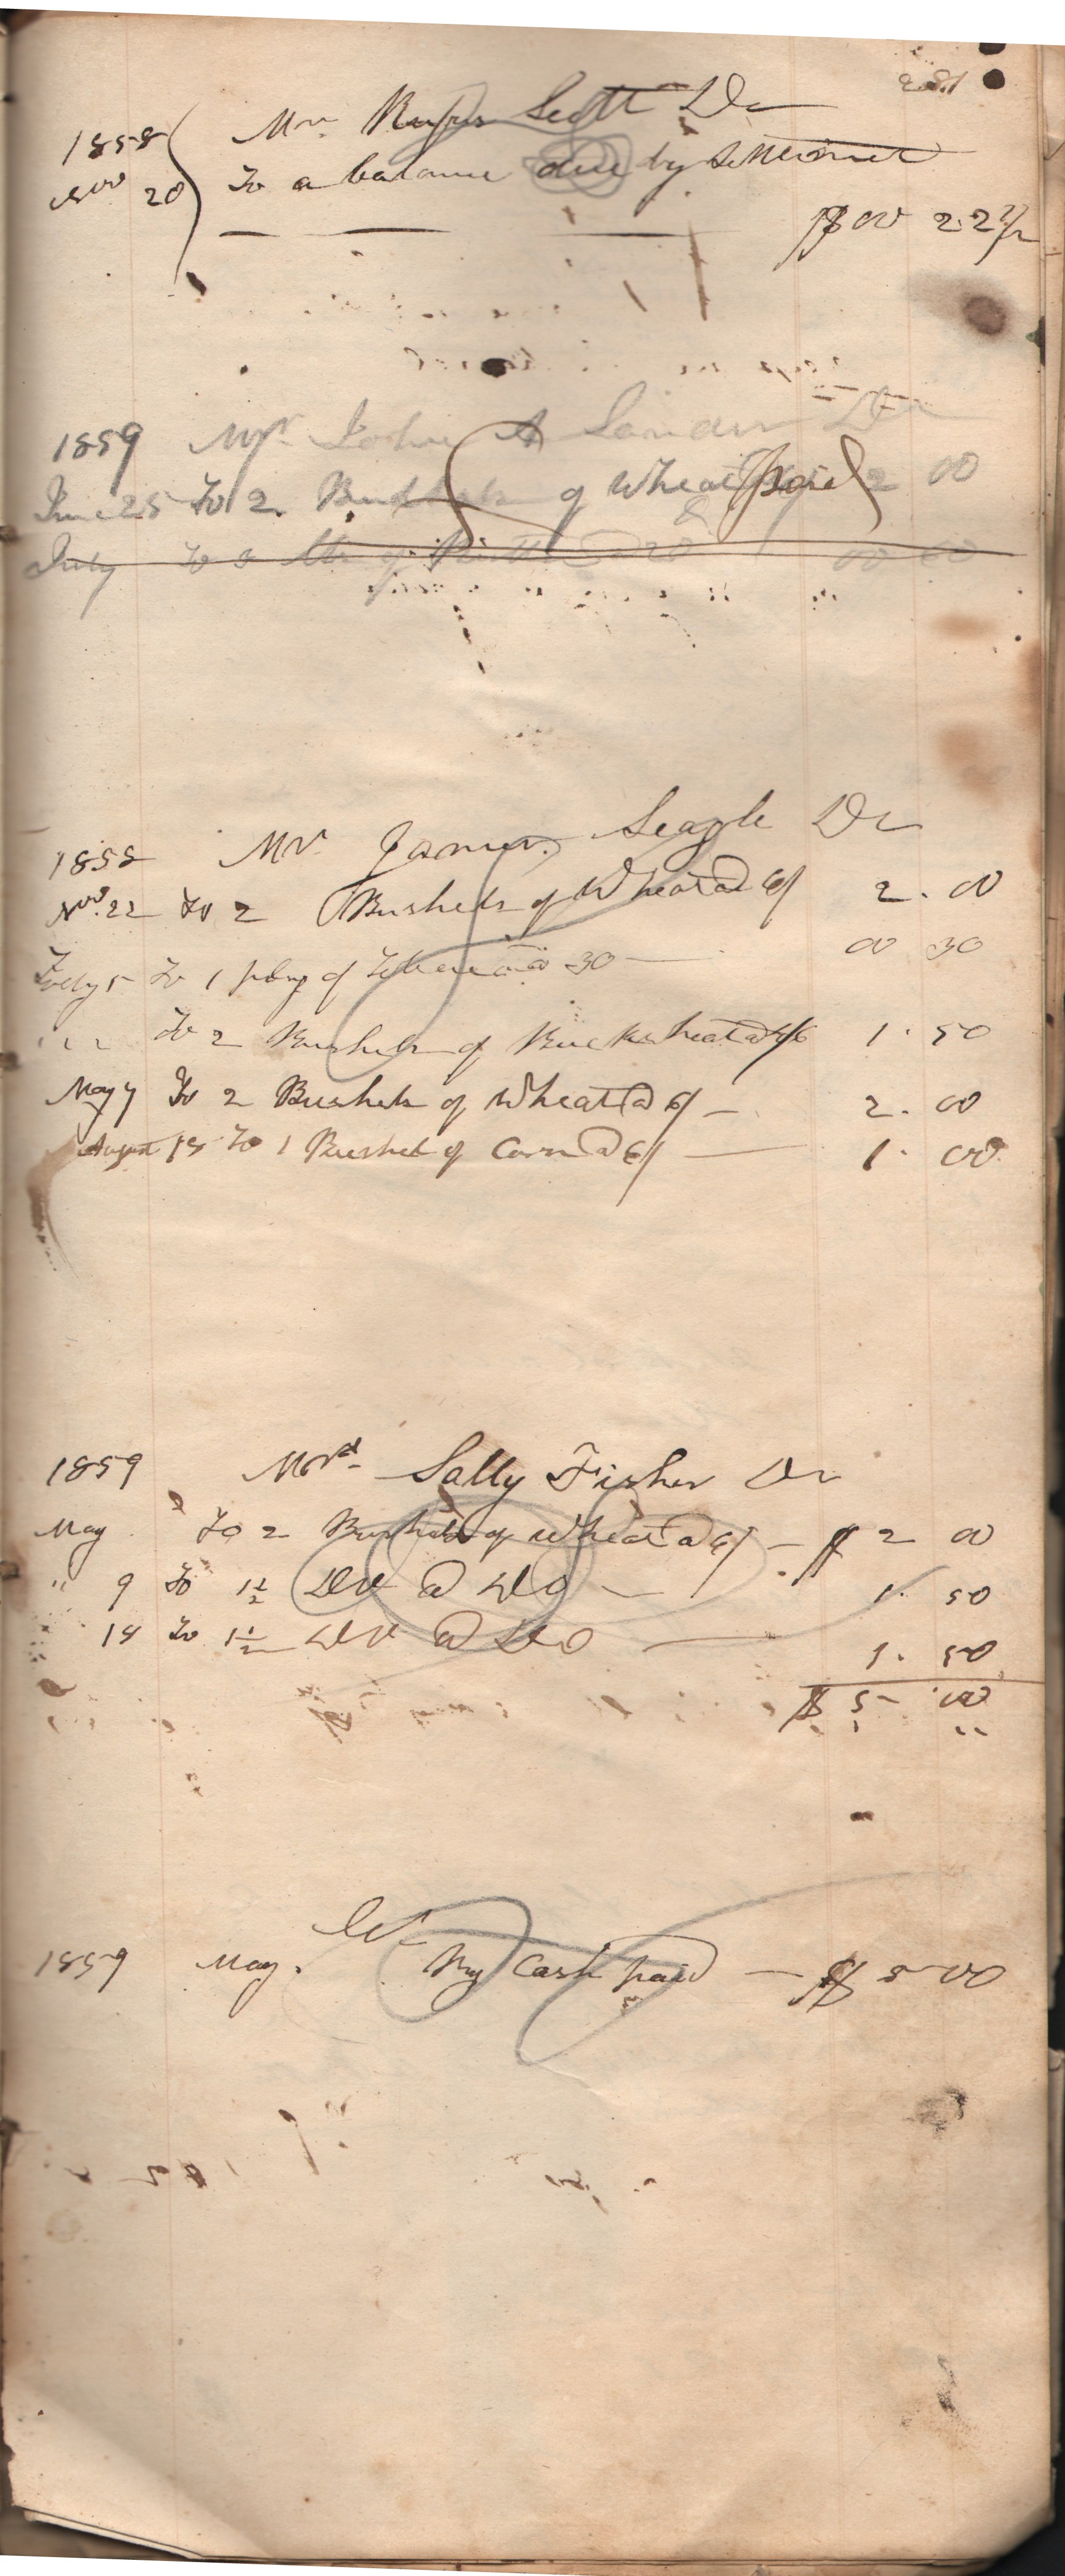 281
1858 Mr. Rufus Scott Dr
Nov 20 To a balance due by Settlement
$ 00 22 1/2
1859 Mr. John A Sander Dr
June 25 To 2 Bushels of Wheat Paid 2 00
July To 00
1858 Mr. James Seagle Dr
Nov. 22 To 2 Bushels of Wheat @ 6/ 2. 00
Feby 5 To 1 plug of Tobacco @ 30 — 00 30
" " To 2 Bushels of Buckwheat @ 4/6 1. 50
May 7 To 2 Bushels of Wheat @ 6/ — 2. 00
August 18 To 1 Bushel of Corn @ 6/ — 1. 00
1859 Mrs. Sally Fisher Dr
May 2 To 2 Bushels of Wheat @ 6/ — $ 2 00
" 9 To 1 1/2 Do @ Do — 1. 50
18 To 1 1/2 Do @ Do — 1. 50
$ 5 - 00
Cr
1859 May. By Cash paid — $ 5 - 00